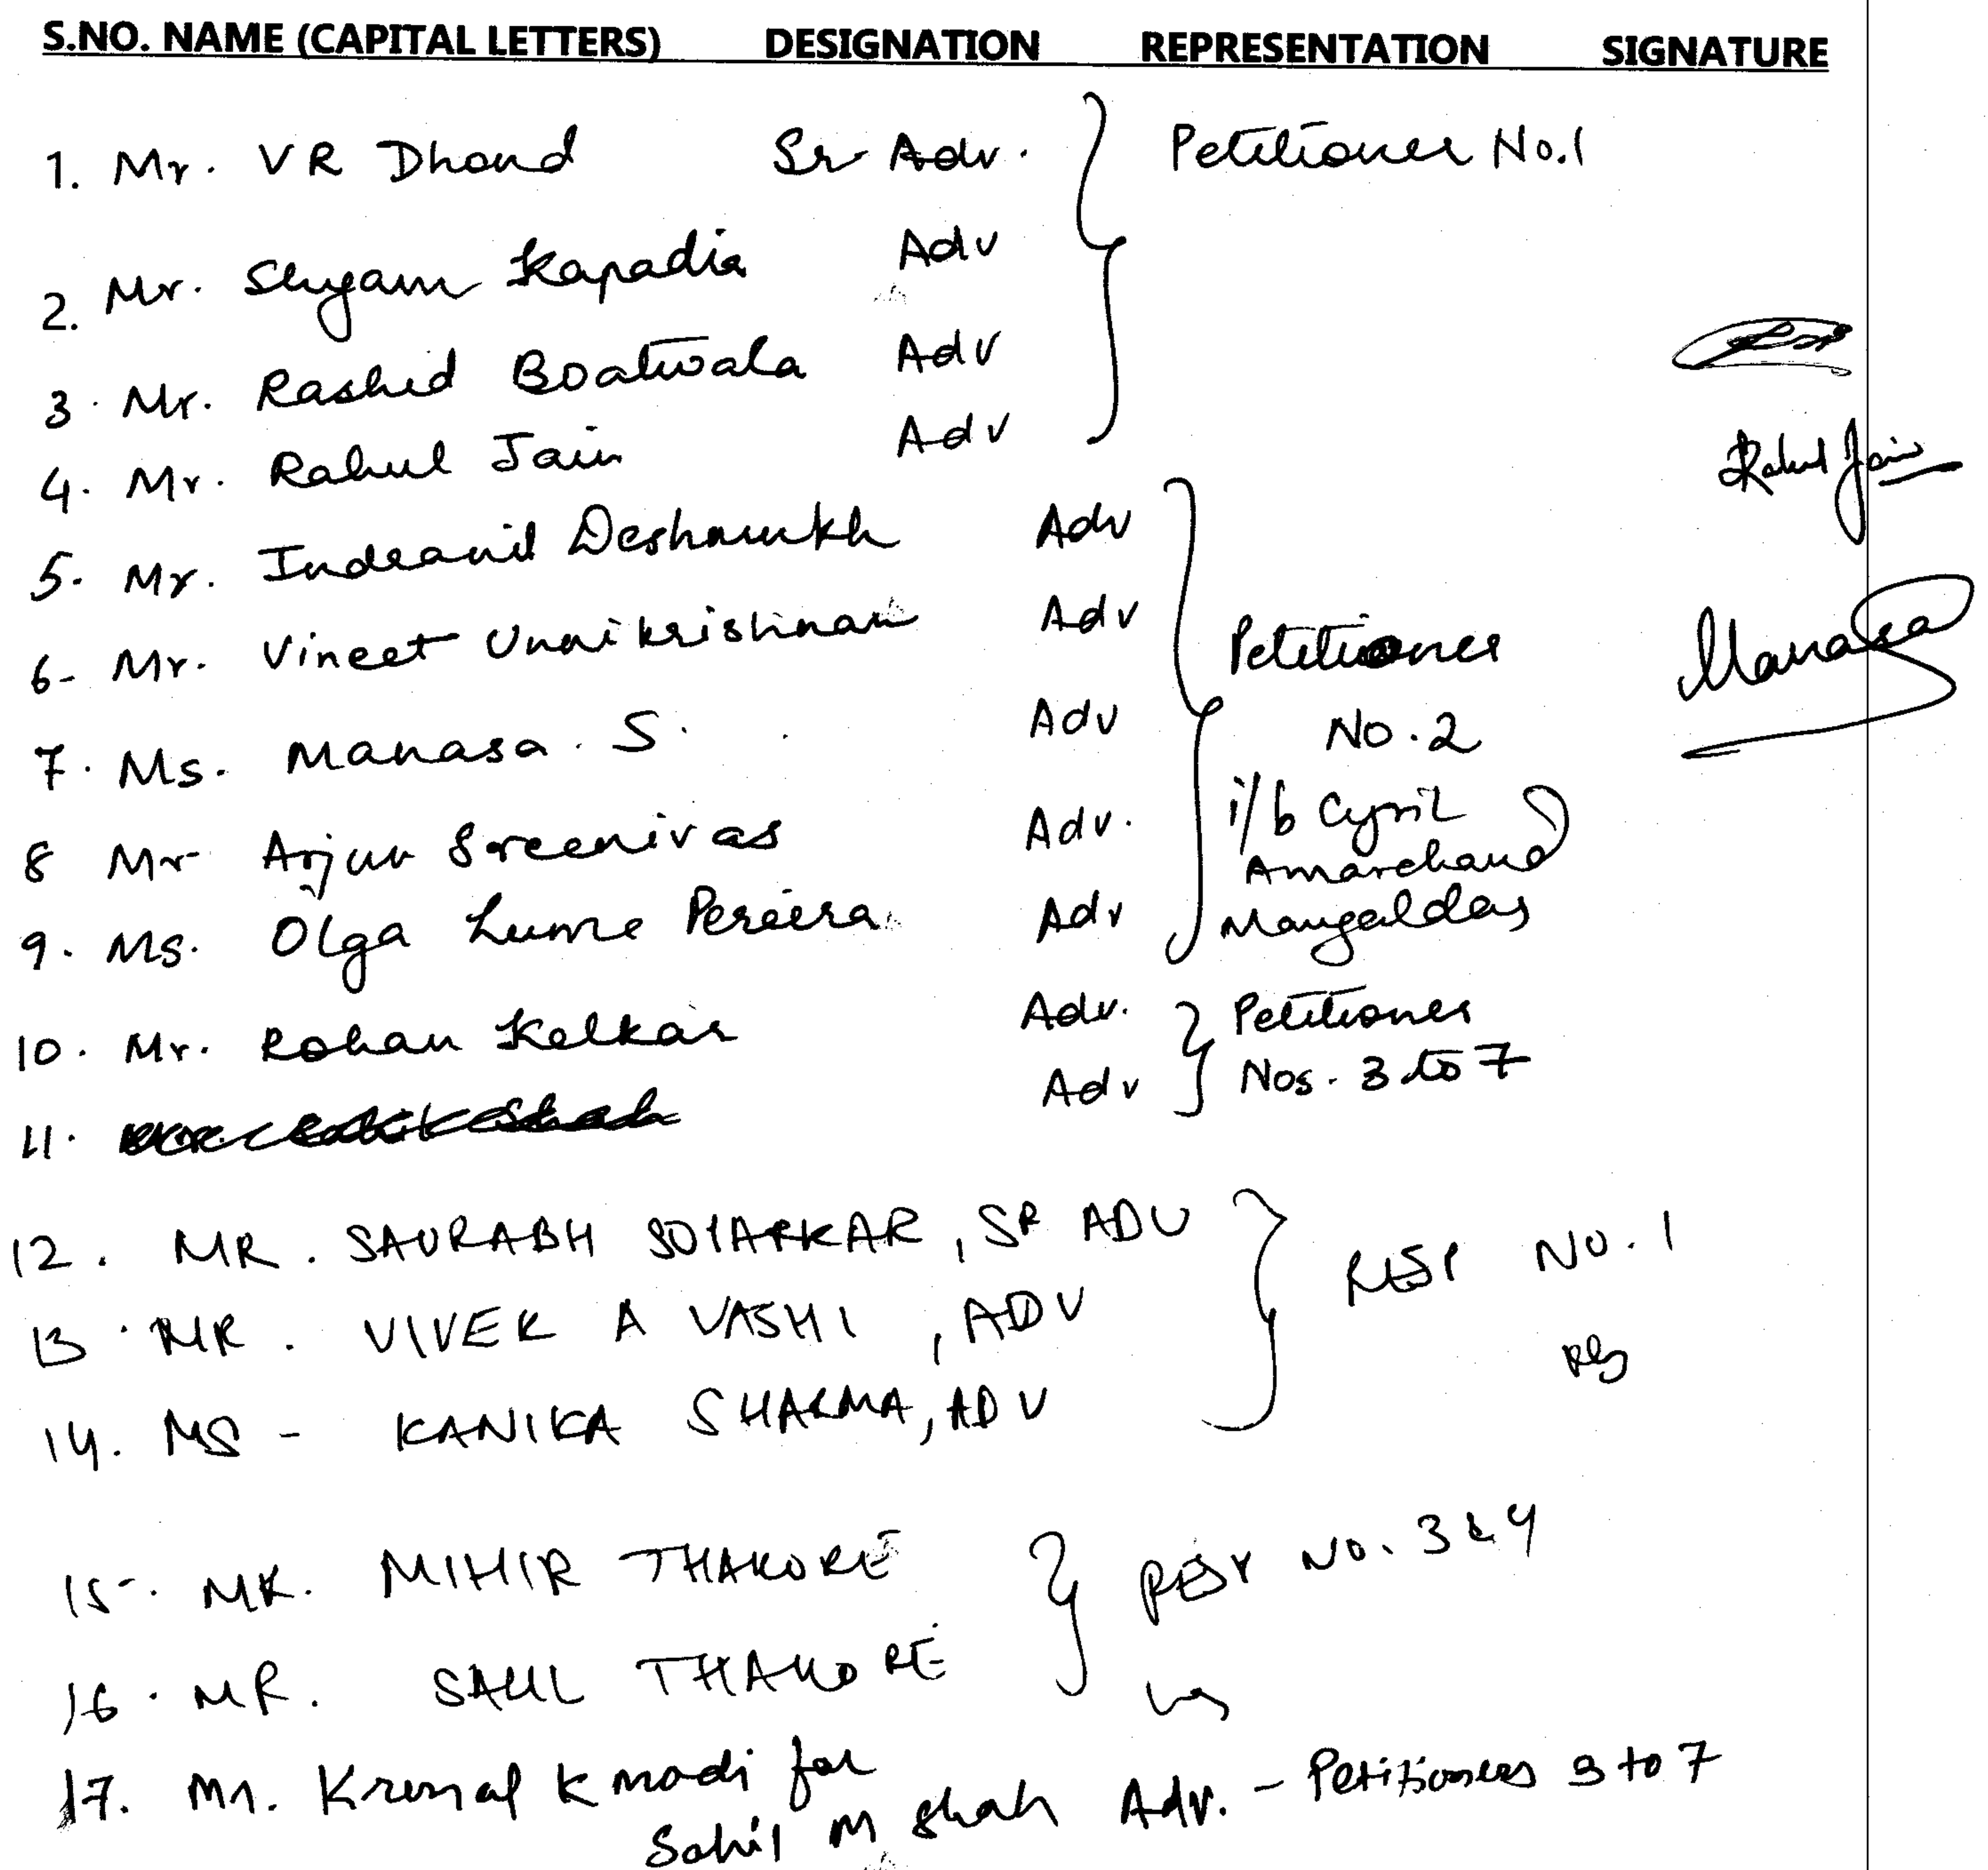 S.NO. NAME (CAPITAL LETTERS) DESIGNATION REPRESENTATION SIGNATURE
1. Mr. VR Dhond Sr Adv. Petitioner No.1
2. Mr. Shyam Kapadia Adv
3. Mr. Rashid Boatwala Adv
4. Mr. Rahul Jain Adv Rahul Jain
5. Mr. Indranil Deshmukh Adv
6. Mr. Vineet Unnikrishnan Adv Petitioner
7. Ms. Manasa. S. Adv No. 2 Manasa
8 Mr Arjun Sreenivas Adv. i/b Cyril Amarchand
9. Ms. Olga Lume Pereira Adv Mangaldas
10. Mr. Rohan Kelkar Adv. Petitioner
11. Adv Nos. 3 to 7
12. MR. SAURABH SOPARKAR, SR ADV RESP NO. 1
13. MR. VIVEK A VASHI, ADV
14. MS - KANIKA SHARMA, ADV
15. MR. MIHIR THAKORE RESP NO. 3 & 4
16. MR. SALIL THAKORE
17. Mr. Kunal K modi for
Sahil M Shah Adv. - Petitioners 3 to 7